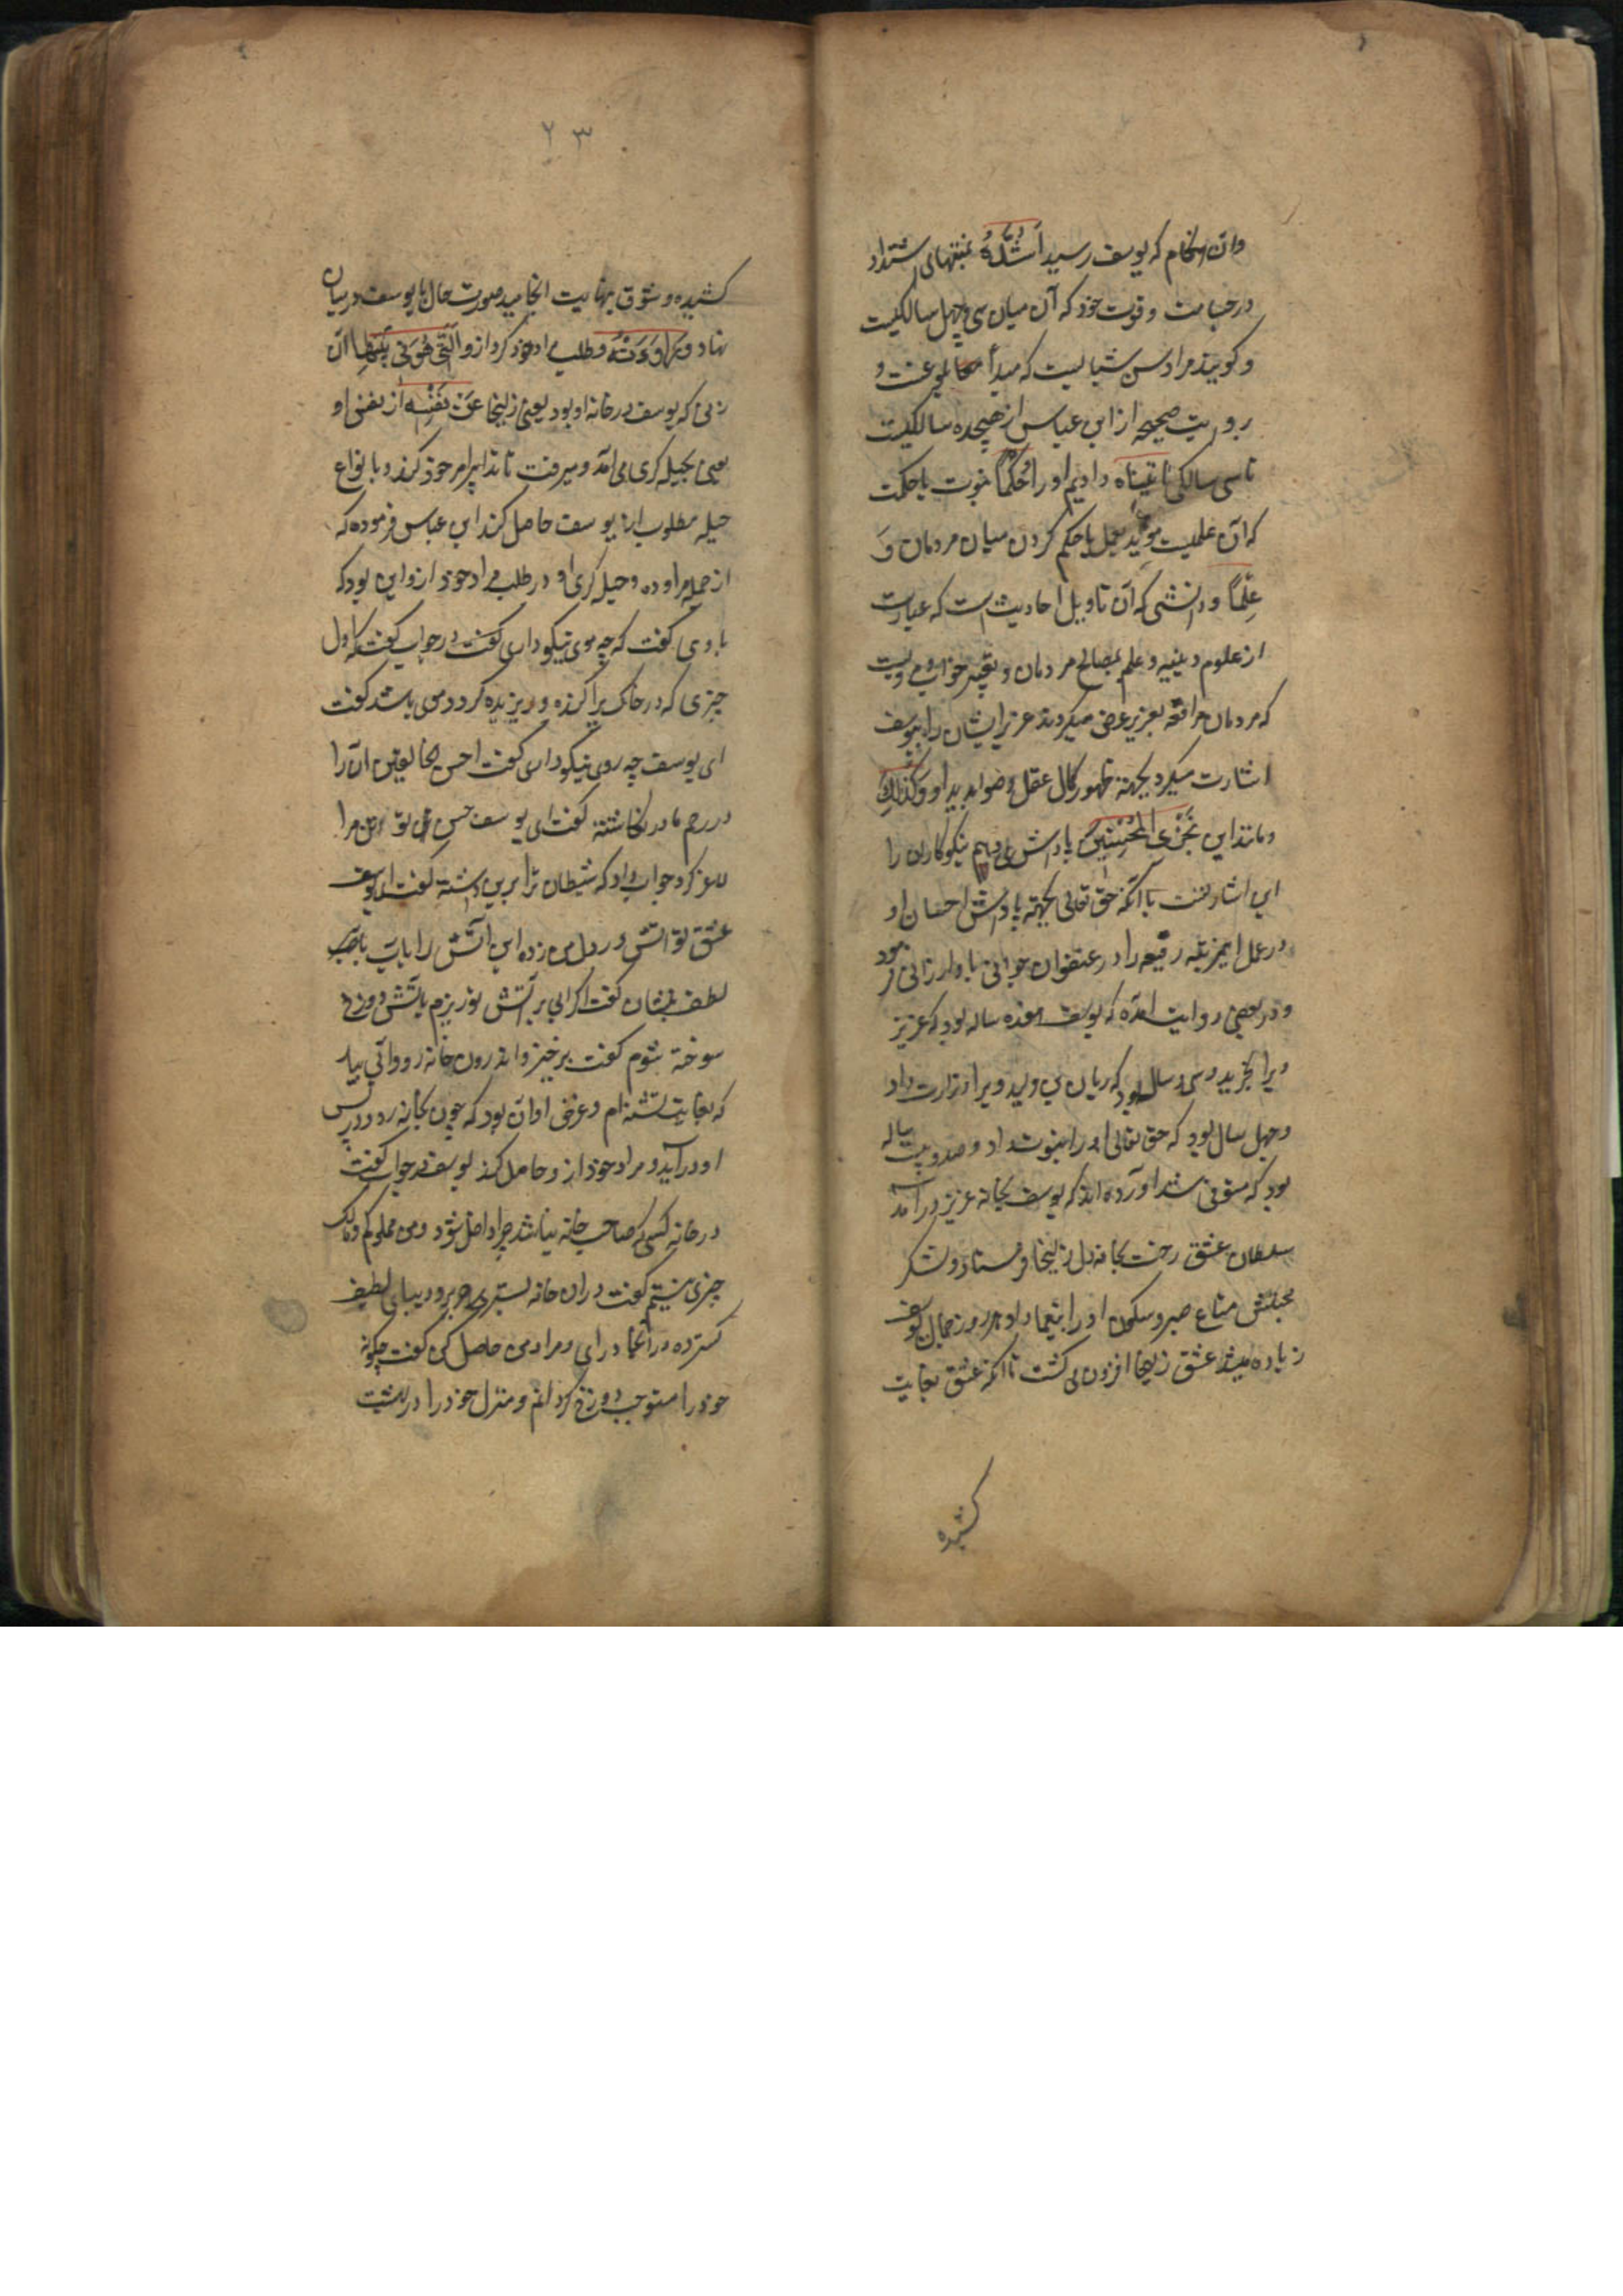 وان هنگام که یوسف رسید اَشُدَّهُ بمنتهای اشتداد
در جسامت و قوت خود که آن میان سی و چهل سالگیست
و گویند مراد سن شبابست که مبدأ بلوغست و
بروایت صحیحه از ابن عباس از هیجده سالگیست
تا سی سالگی اتیناه دادیم او را حُکمًا نبوت یا حکمت
که آن علمیست مؤید بعمل یا حکم کردن میان مردمان وَ
عِلمًا و دانشی که آن تاویل احادیث است که عبارت
از علوم دینیه و علم بمصالح مردمان و تعبیر خواب و مرویست
که مردمان مرافعه بعزیز عرض میکردند عزیز ایشان را بیوسف
اشارت میکرد بجهته ظهور کمال عقل و صوابدید او وَکَذلِكَ
و مانند این نَجزِی المُحسِنینَ پاداش می دهیم نیکوکاران را
این اشارتست بآنکه حق تعالی بجهته پاداش احسان او
در عمل این مرتبه رفیعه را در عنفوان جوانی باو ارزانی فرمود
و در بعضی روایت امده که یوسف هفده ساله بود که عزیز
ویرا بخرید و سی سال بود که ریان بن ولید ویرا وزارت داد
و چهل سال بود که حق تعالی او را نبوت داد و صد و بیست ساله
بود که متوفی شد اورده اند که یوسف بخانه عزیز درآمد
سلطان عشق رخت بخانه دل زلیخا فرستاد و لشکر
محبتش متاع صبر و سکون او را بیغما داد هر روز جمال یوسف
زیاده میشد عشق زلیخا افزون می گشت تا آنکه عشق بغایت
کشیده
۲۳
کشیده و شوق بنهایت انجامید صورت حال با یوسف در میان
نهاد وَرَاوَدَتهُ و طلب مراد خود کرد ازو الَّتی هُوَ فی بَیتِها آن
زنی که یوسف در خانه او بود یعنی زلیخا عَن نَفسِه از نفس او
یعنی بحیله گری می آمد و میرفت تا تدابیر امر خود کند و بانواع
حیله مطلوب از یوسف حاصل کند ابن عباس فرموده که
از جمله مراوده و حیله گری او در طلب مراد خود ازو این بود که
با وی گفت که چه موی نیکو داری گفت در جواب گفت که اول
چیزی که در خاک پراکنده و ریزیده گردد موی باشد گفت
ای یوسف چه روی نیکو داری گفت احسن الخالقین آن را
در رحم مادر نگاشته گفت ای یوسف حسن تو مرا
کرد جواب داد که شیطان ترا برین داشته گفت ای یوسف
عشق تو آتش در دل من زده این آتش را بآب
لطف بنشان گفت اگر آبی بر آتش تو ریزم بآتش دوزخ
سوخته شوم گفت برخیز و اندرون خانه رو و آبی بیار
که بغایت تشنه ام و غرض او آن بود که چون بخانه رود در پس
او درآید و مراد خود ازو حاصل کند یوسف در جواب گفت
در خانه کسی که صاحب خانه نباشد چرا داخل شوم و من مملوکم و مالک
چیزی نیستم گفت در ان خانه بستری حریر و دیبای لطیف
گسترده در آنجا در آی و مراد من حاصل کن گفت چگونه
خود را مستوجب دوزخ گردانم و منزل خود را در بهشت